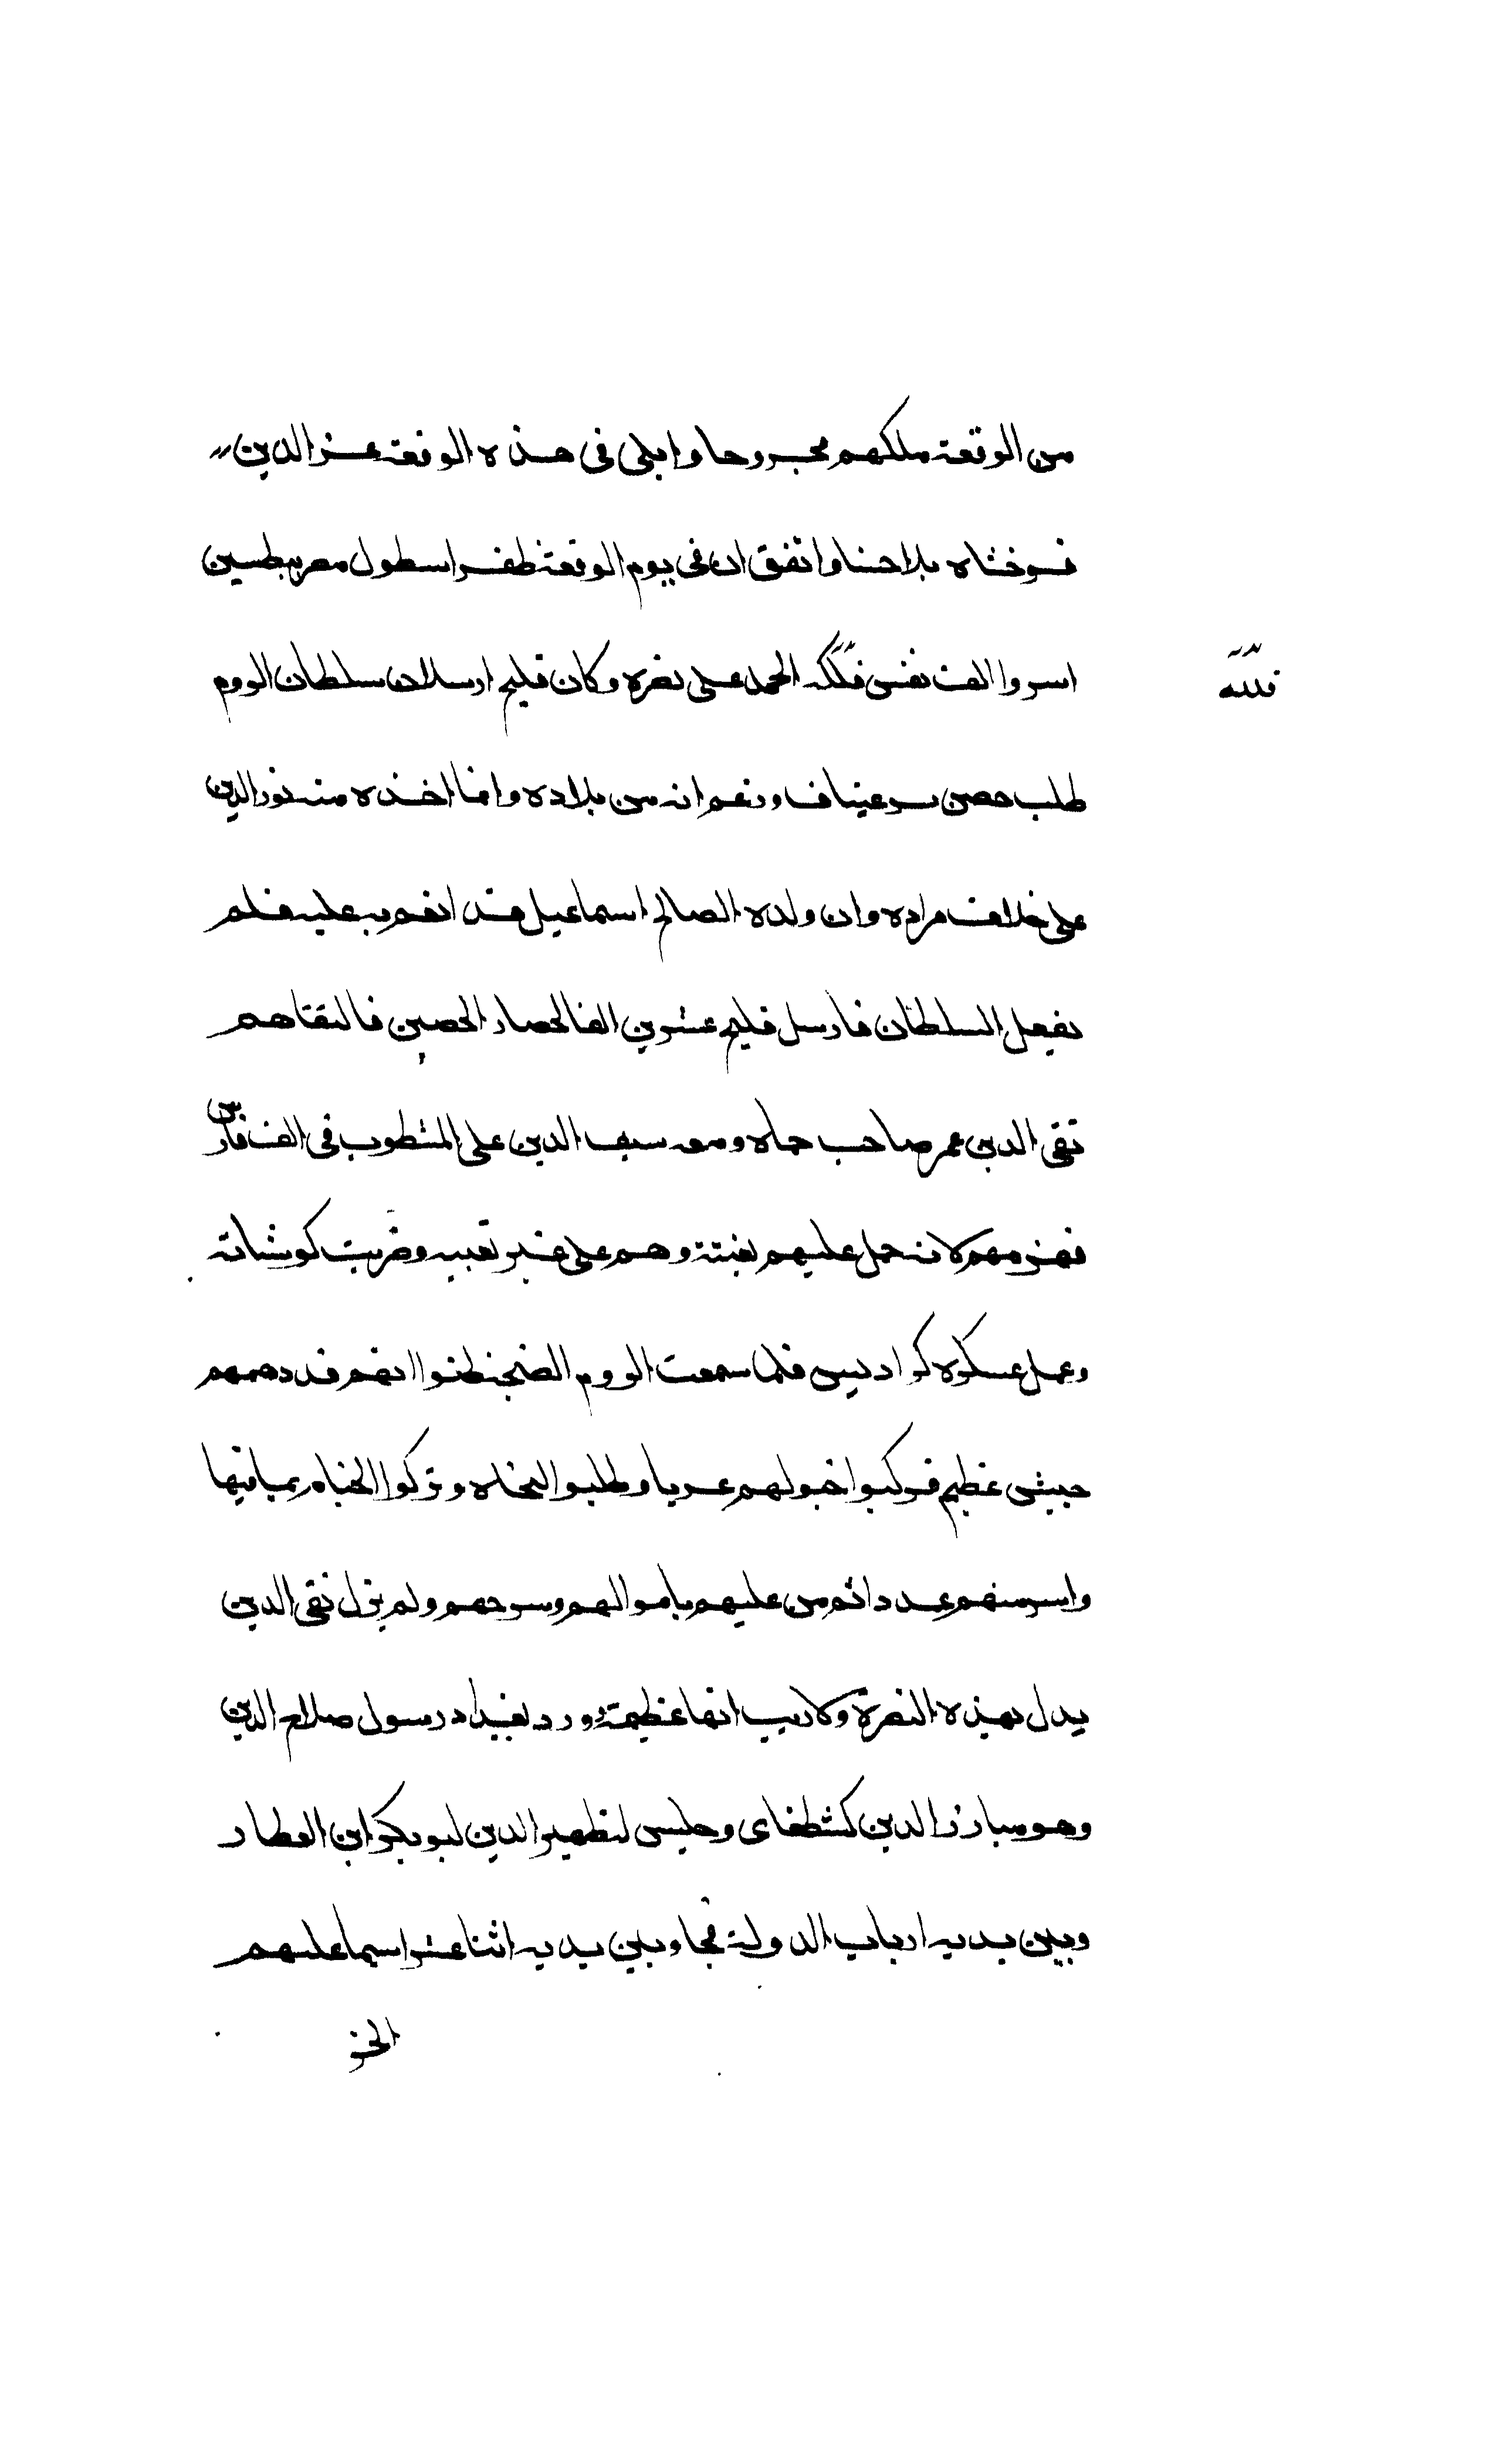 من الوقعة ملكهم مجروحا وابلى فى هذه الوقعة عز الدين
فرخشاه بلاحسنا واتفق ان فى يوم الوقعة ظفر اسطول مصر ببطسين
اسروا الف نفس فلله الحمد على نصره وكان قليج ارسلان سلطان الروم
فلله
طلب حصن رعبان وزعم انه من بلاده وانما اخذه منه نور الدين
على خلاف مراده وان ولده الصالح اسماعيل قد انعم به عليه فلم
يفعل السلطان فارسل قليج عشرين الفا لحصار الحصين فالتقاهم
تقى الدين عمر صاحب حماه ومعه سيف الدين على المشطوب فى الف فارس
فهزمهم لانه حمل عليهم بغتة وهم على غير تعبيه وضربت كوساته
وعمل عسكره كراديس فلما سمعت الروم الضجه ظنوا انهم قد دهمهم
جيش عظيم فركبوا خيولهم عريا وطلبوا النجاه وتركوا الخيام بما فيها
واسر منهم عددا ثم من عليهم باموالهم وسرحهم ولم يزل تقى الدين
يدل بهذه النصرة ولا ريب انها عظيمة وورد بغداد رسول صلاح الدين
وهو مبارز الدين كشطغاى وجلس لظهير الدين ابو بكر ابن العطار
وبين يديه ارباب الدولة فجا وبين يديه اثنا عشر اسيرا عليهم
الخو